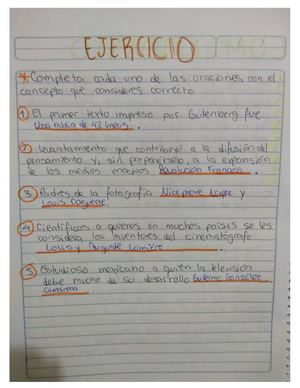 EJERCICIO
* Completar cada uno de las oraciones con el
concepto que consideres correcto
1 El primer texto impreso por Gutenberg fue
Una biblia de 42 lineas.
2 Levantamiento que contribuyó a la difusión del
pensamiento y, sin proponerselo, a la expansión
de los medios masivos Revolución Francesa
3 Padres de la fotografía Nicephore Niepce y
Louis Daguerre.
4 Científicos a quienes en muchos países se les
considera los inventores del cinematógrafo
Louis y Auguste Lumière
5 Estudioso mexicano a quien la televisión
debe mucho de su desarrollo Guillermo González
Camarena.